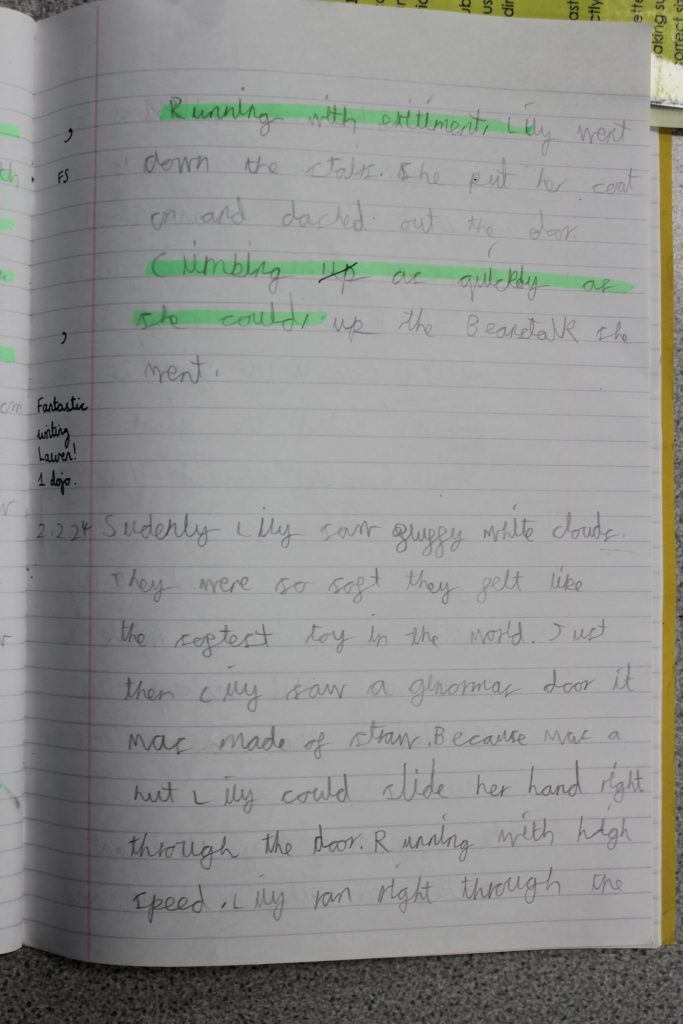 Running with exitiment, Lily went
,
down the stairs. She put her coat
FS
on and dached out the door.
Climbing up as quickly as
she could, up the Beanstalk she
,
went.
Fantastic
writing
Lauren!
1 dojo.
2.2.24 Sudenly Lily saw fluffy white clouds.
They were so soft they felt like
the softest toy in the world. Just
then Lily saw a ginormas door it
was made of straw. Because was a
hut Lily could slide her hand right
through the door. Running with high
speed, Lily ran right through the